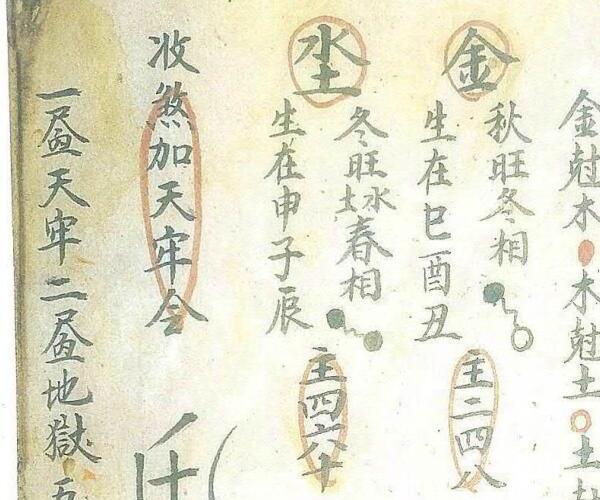 金尅木木尅土土
金
秋旺冬相
生在巳酉丑
主二四八
水土
冬旺土水春相
生在申子辰
主四六十
收煞加天牢令
一天牢二地獄五